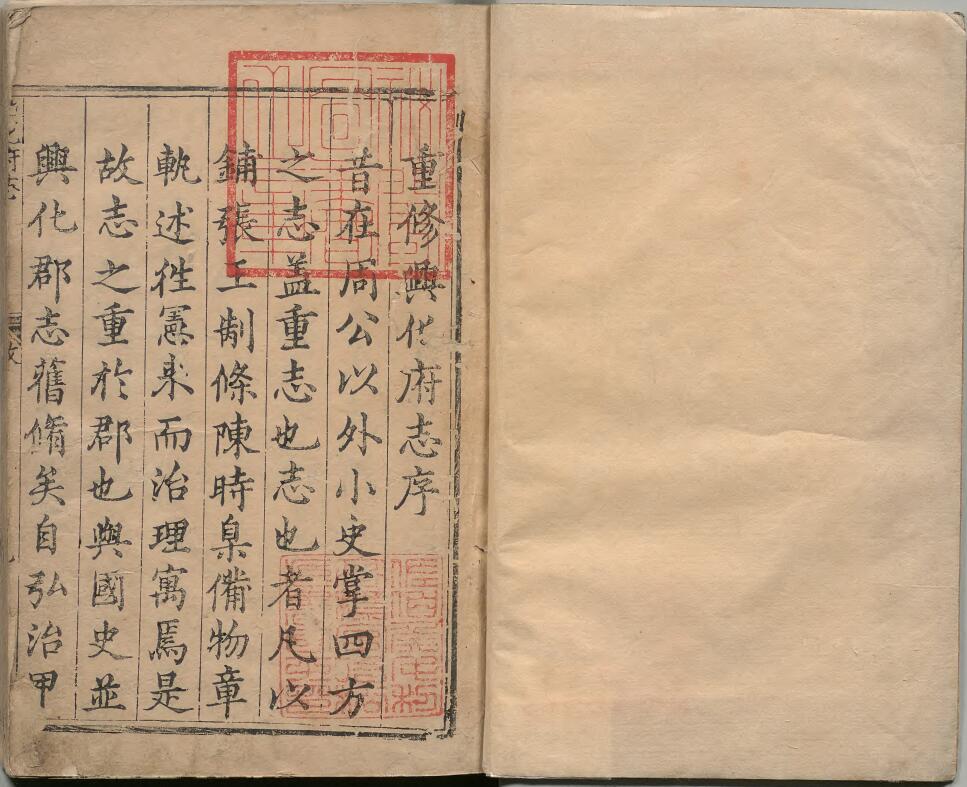 重修興化府志序
昔在周公以外小史掌四方
之志蓋重志也志也者凡以
鋪張王制條陳時臬備物章
軌述徃憲来而治理寓焉是
故志之重於郡也與國史並
興化郡志舊脩矣自弘治甲